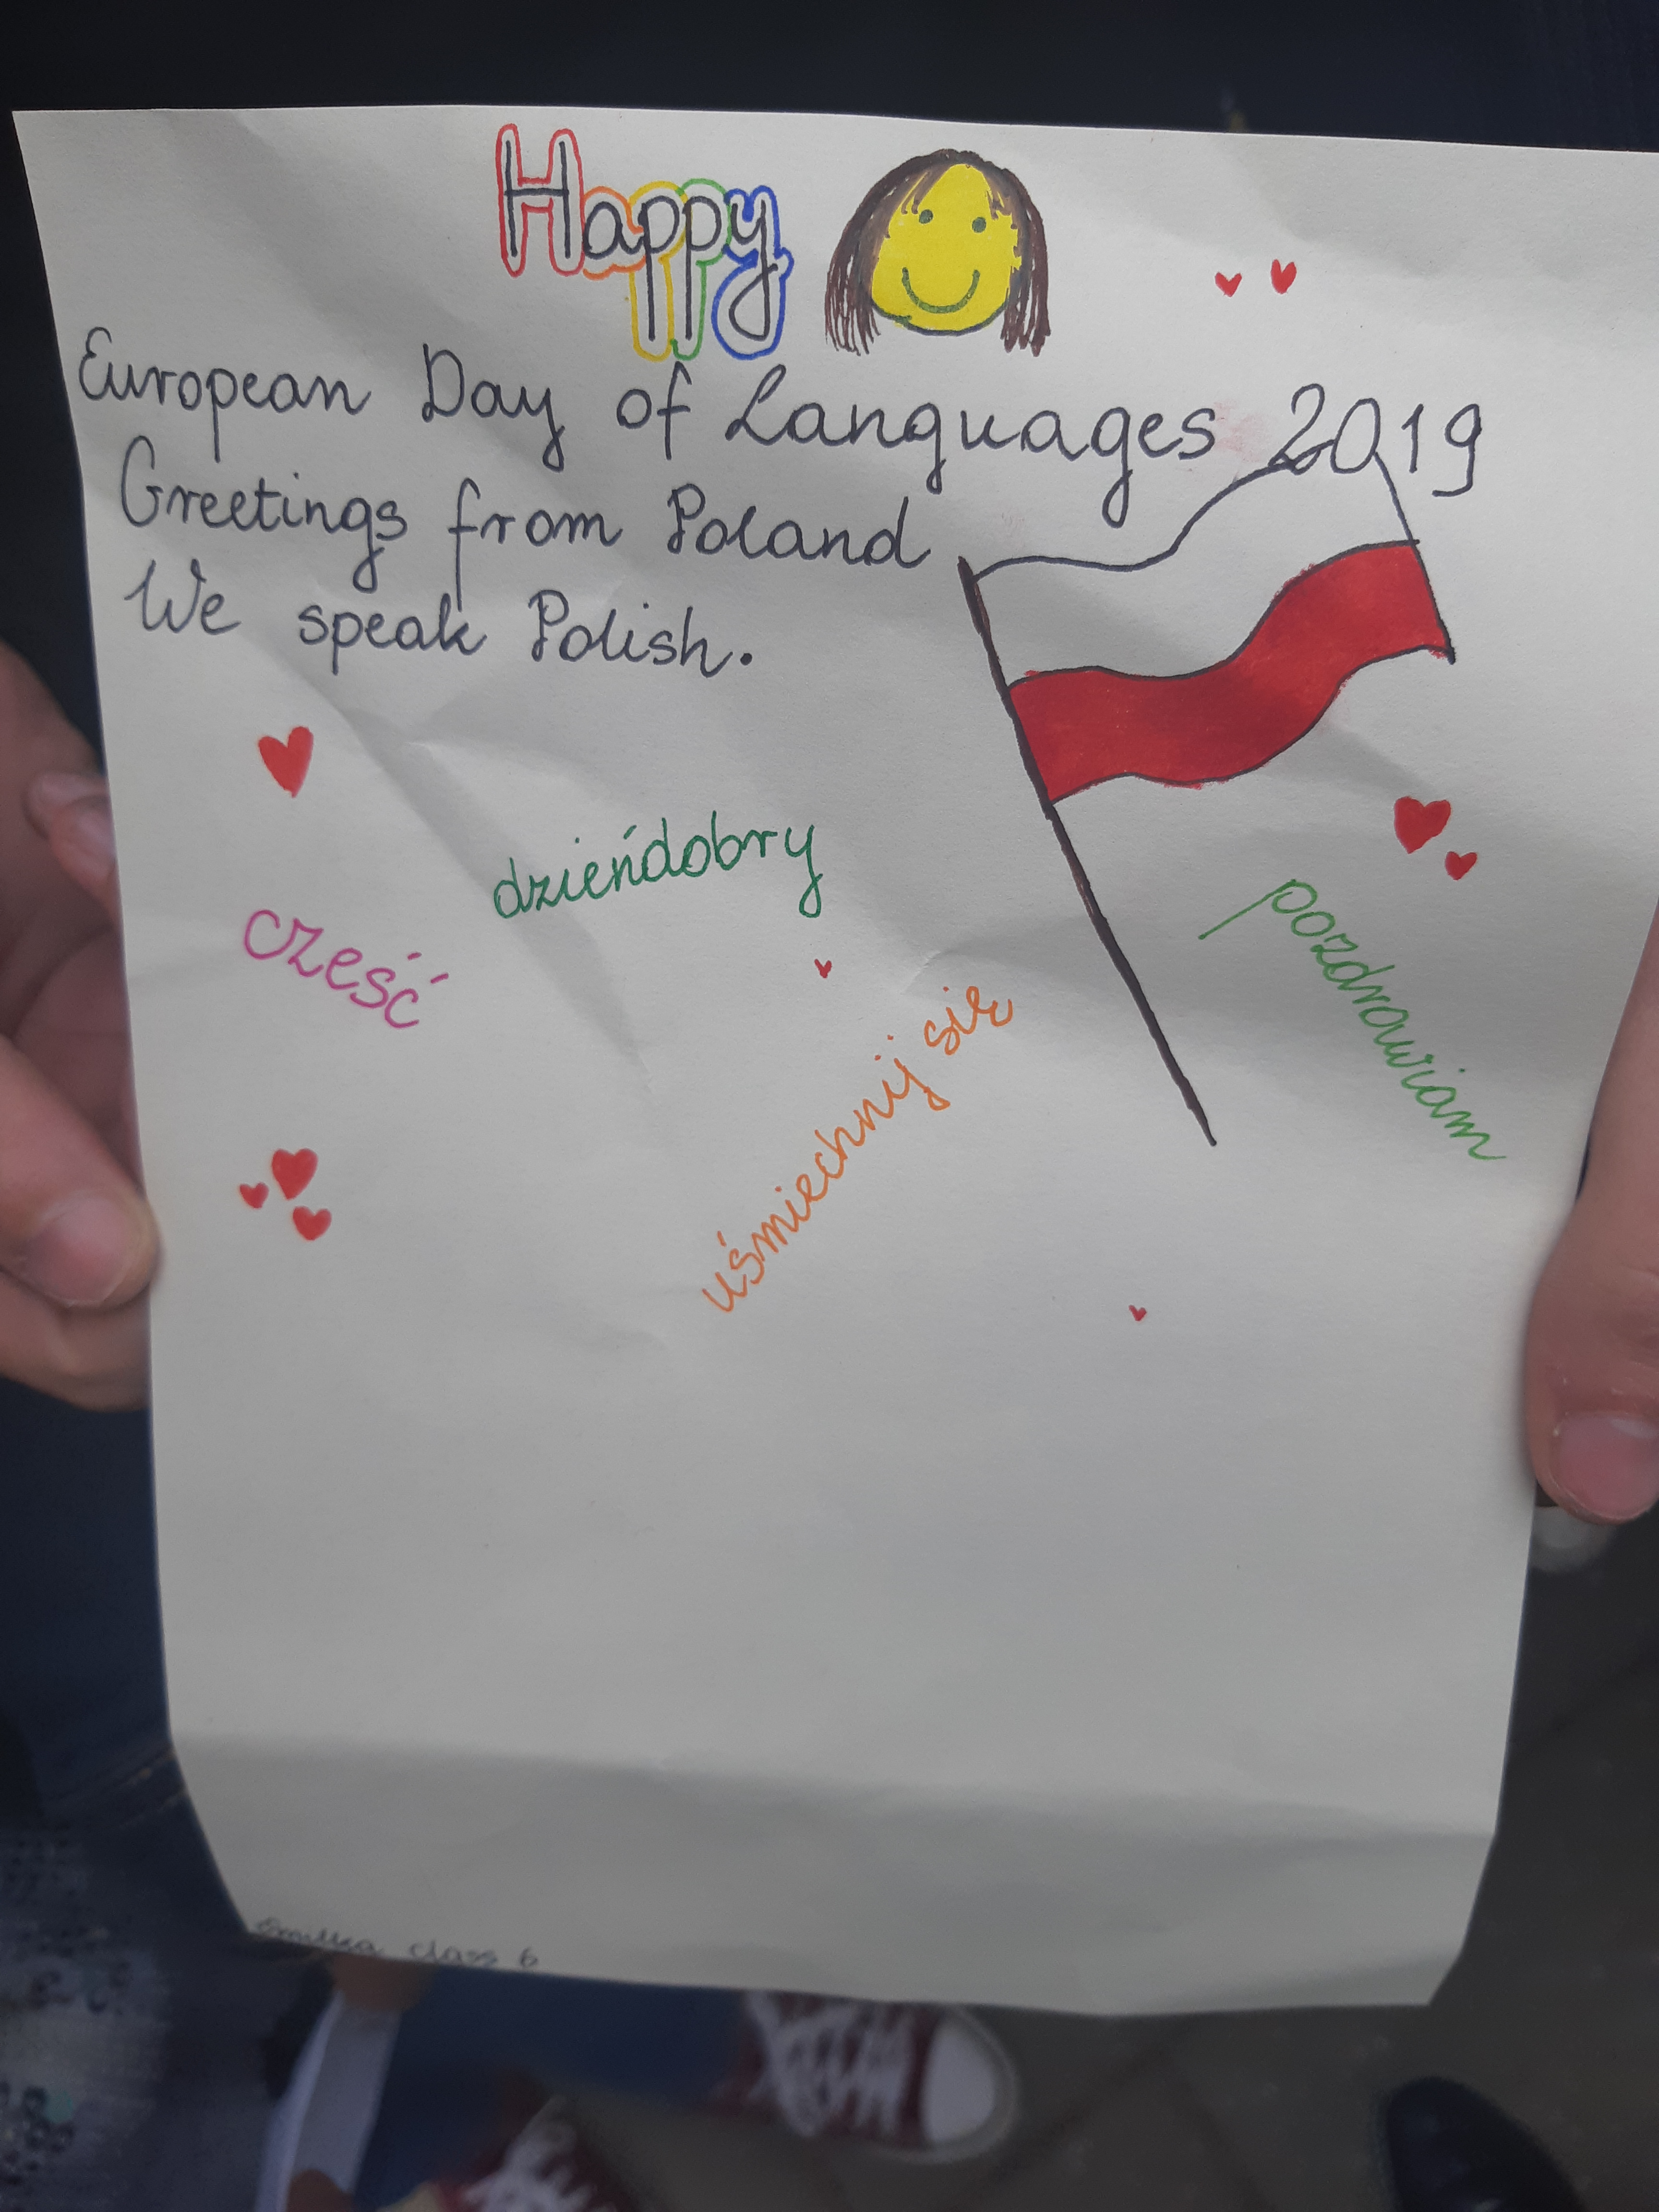 Happy
European Day of Languages 2019
Greetings from Poland
We speak Polish.
dzieńdobry
cześć
pozdrawiam
uśmiechnij się
Emilka class 6